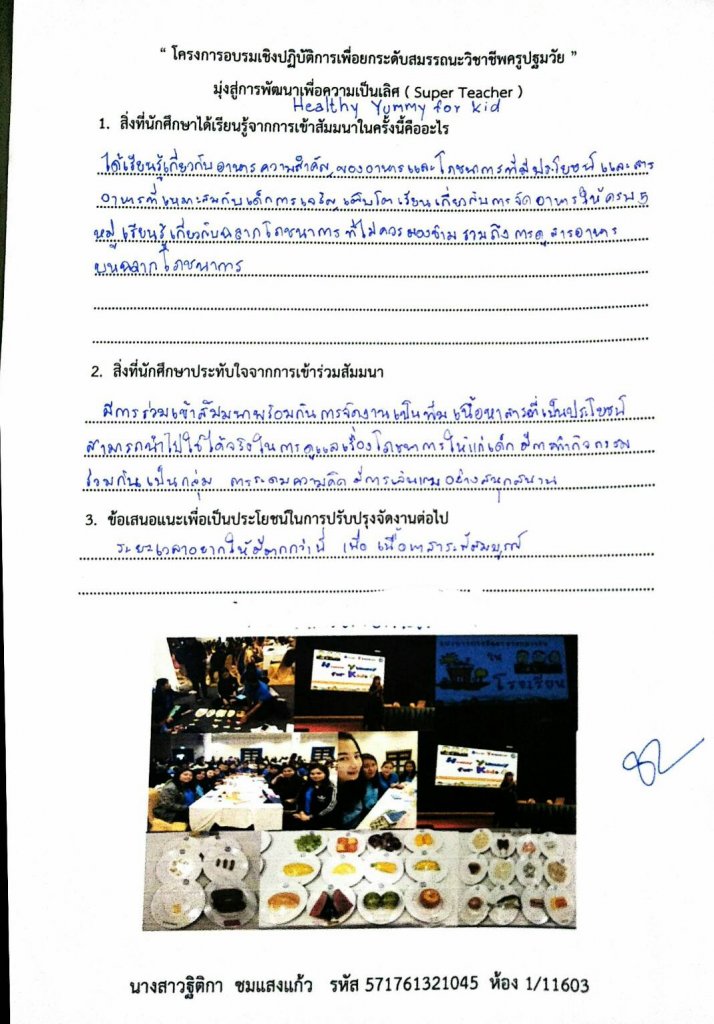 “ โครงการอบรมเชิงปฏิบัติการเพื่อยกระดับสมรรถนะวิชาชีพครูปฐมวัย ”
มุ่งสู่การพัฒนาเพื่อความเป็นเลิศ ( Super Teacher )
Healthy Yummy for kid
1. สิ่งที่นักศึกษาได้เรียนรู้จากการเข้าสัมมนาในครั้งนี้คืออะไร
ได้เรียนรู้เกี่ยวกับอาหาร ความสำคัญของอาหารและโภชนาการที่มีประโยชน์ และสาร
อาหารที่เหมาะสมกับเด็ก การเจริญเติบโต เรียนเกี่ยวกับการจัดอาหารให้ครบ 5
หมู่ เรียนรู้เกี่ยวกับฉลากโภชนาการ ที่ไม่ควรมองข้าม รวมถึงการดูสารอาหาร
บนฉลากโภชนาการ
2. สิ่งที่นักศึกษาประทับใจจากการเข้าร่วมสัมมนา
มีการร่วมเข้าสัมมนาพร้อมกัน การจัดงานเป็นทีม เนื้อหาสารที่เป็นประโยชน์
สามารถนำไปใช้ได้จริงในการดูแลเรื่องโภชนาการให้แก่เด็ก มีการทำกิจกรรม
ร่วมกันเป็นกลุ่ม การระดมความคิด มีการเล่นเกมอย่างสนุกสนาน
3. ข้อเสนอแนะเพื่อเป็นประโยชน์ในการปรับปรุงจัดงานต่อไป
ระยะเวลาอยากให้มีมากกว่านี้ เพื่อ เนื้อหาสาระที่สมบูรณ์
โรงเรียน
นางสาวฐิติกา ชมแสงแก้ว รหัส 571761321045 ห้อง 1/11603